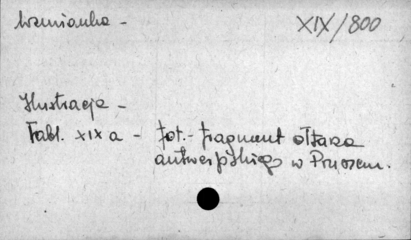 Wzmianka -
XIX/800
Ilustracja -
Tabl. XIX a - fot. - fragment ołtarza
antwerpskiego w Pruszem.